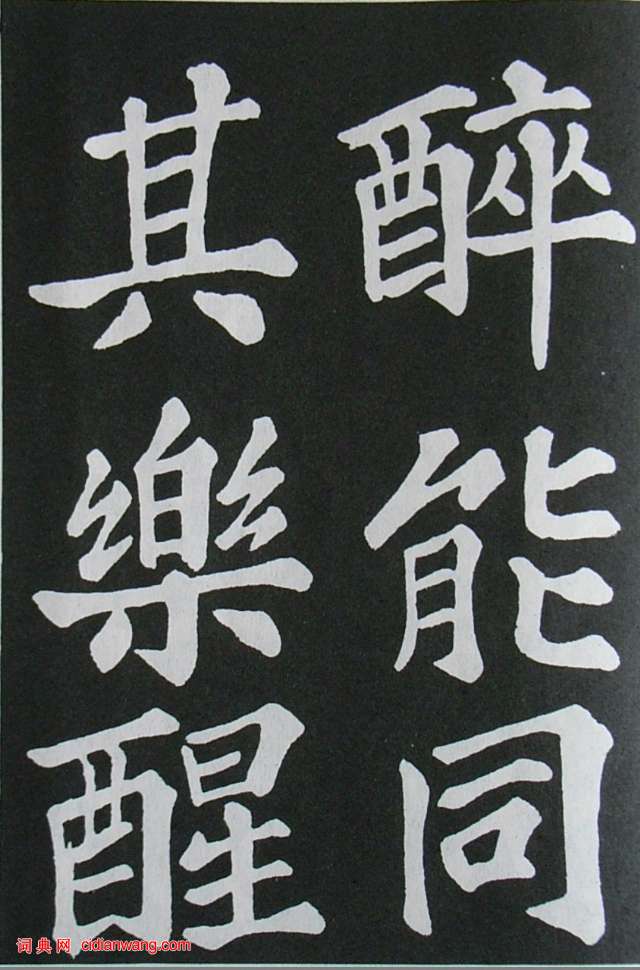 醉能同
其樂醒
词典网 cidianwang.com